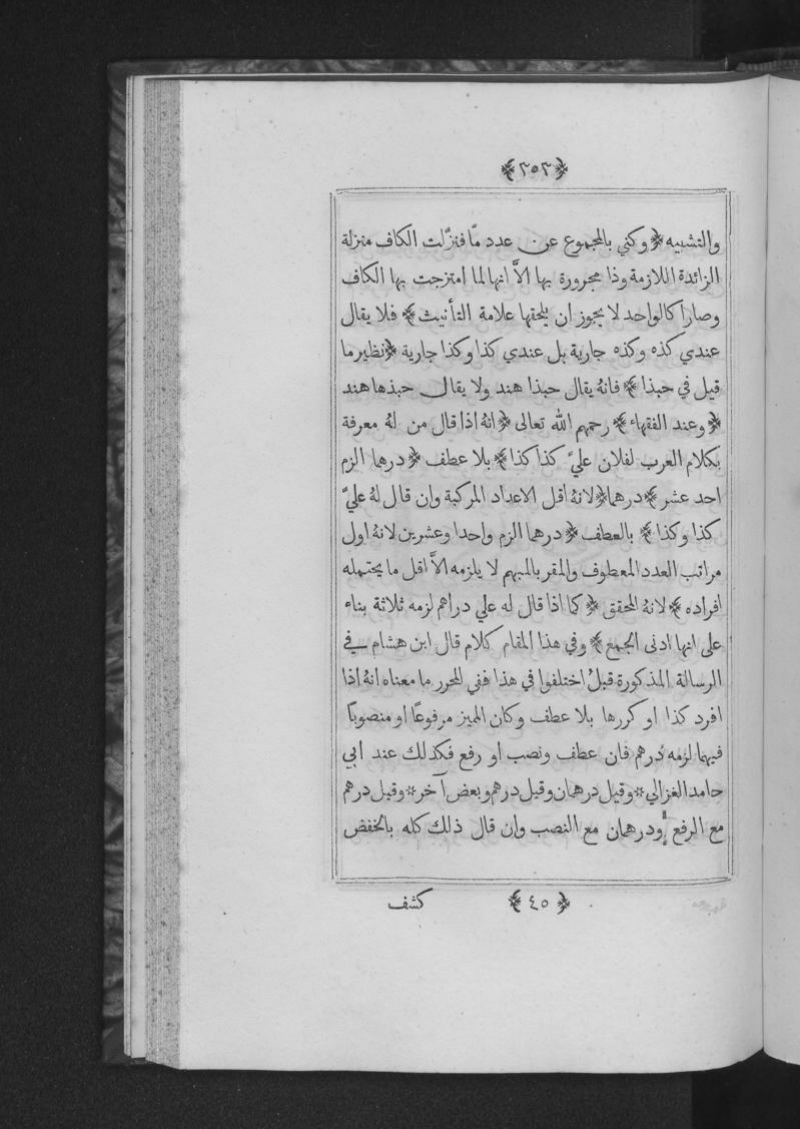 ﴿٣٥٣﴾
والتشبيه ﴿ وكني بالمجموع عن عدد مّا فنزّلت الكاف منزلة
الزائدة اللازمة وذا مجرورة بها الاّ انها لما امتزجت بها الكاف
وصارا كالواحد لا يجوز ان يلحقها علامة التأنيث ﴾ فلا يقال
عندي كذه وكذه جارية بل عندي كذا وكذا جارية ﴿ نظير ما
قيل في حبذا ﴾ فانهُ يقال حبذا هند ولا يقال حبذها هند
﴿ وعند الفقهاء ﴾ رحمهم الله تعالى ﴿ انهُ اذا قال من لهُ معرفة
بكلام العرب لفلان عليّ كذا كذا ﴾ بلا عطف ﴿ درهما الزم
احد عشر ﴾ درهما ﴿ لانهُ اقل الاعداد المركبة وان قال لهُ عليّ
كذا وكذا ﴾ بالعطف ﴿ درهما الزم واحدا وعشرين لانهُ اول
مراتب العدد المعطوف والمقر بالمبهم لا يلزمه الاّ اقل ما يحتمله
افراده ﴾ لانهُ المحقق ﴿ كما اذا قال له علي دراهم لزمه ثلاثة بناء
على انها ادنى الجمع ﴾ وفي هذا المقام كلام قال ابن هشام في
الرسالة المذكورة قبلُ اختلفوا في هذا ففي المحرر ما معناه انهُ اذا
افرد كذا او كررها بلا عطف وكان المميز مرفوعًا او منصوبًا
فيهما لزمه درهم فان عطف ونصب او رفع فكذلك عند ابي
حامد الغزالي * وقيل درهمان وقيل درهم وبعض آخر * وقيل درهم
مع الرفع ودرهمان مع النصب وان قال ذلك كله بالخفض
﴿ ٤٥ ﴾ كشف